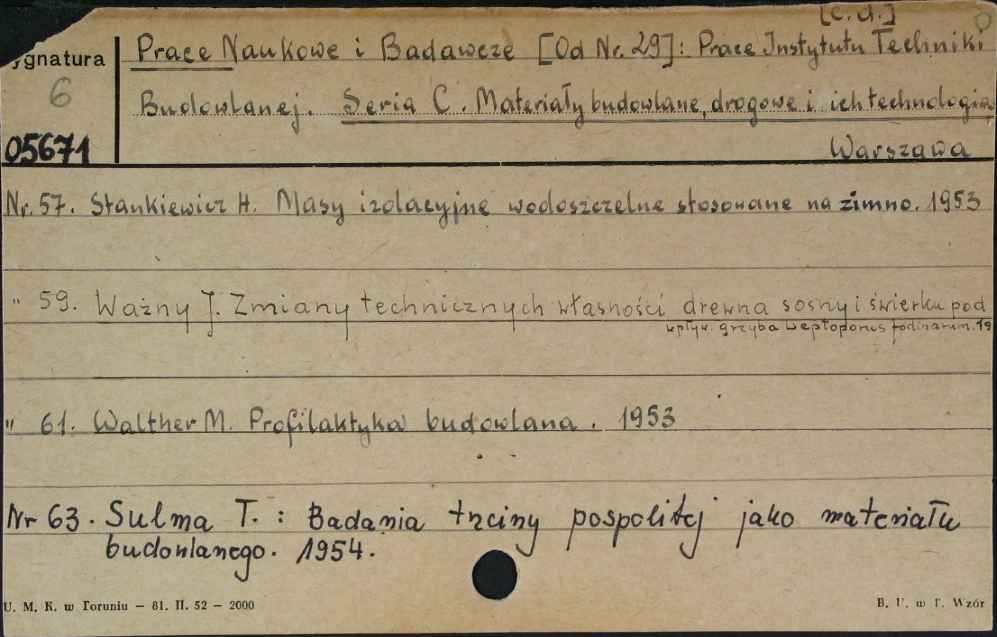 [c.d.]
ygnatura
Prace Naukowe i Badawcze [Od Nr. 29]: Prace Instytutu Techniki
6
Budowlanej. Seria C. Materiały budowlane, drogowe i ich technologia
05671
Warszawa
Nr. 57. Stankiewicz H. Masy izolacyjne wodoszczelne stosowane na zimno. 1953
" 59. Ważny J. Zmiany technicznych własności drewna sosny i świerku pod
wpływ. grzyba Leptoporus fodinarum. 19
" 61. Walther M. Profilaktyka budowlana. 1953
Nr 63. Sulma T.: Badania trzciny pospolitej jako materiału
budowlanego. 1954.
U. M. K. w Toruniu – 81. II. 52 – 2000
B. U. w T. Wzór